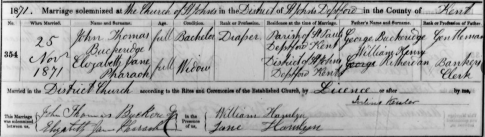 1871. Marriage solemnized at the Church of St Johns in the District of St Johns Deptford in the County of Kent
No. When Married. Name and Surname. Age. Condition. Rank or Profession. Residence at the time of Marriage. Father's Name and Surname. Rank or Profession of Father.
354 25 Nov 1871
John Thomas full Bachelor Draper. Parish of St Pauls Deptford Kent George Gentleman
Elizabeth Jane Pharaoh full Widow District of St John Deptford Kent George Bankers Clerk
Married in the District Church according to the Rites and Ceremonies of the Established Church, by Licence or after by me,
This Marriage was solemnized between us, John Thomas Elizabeth Jane Pharaoh in the Presence of us, William Hamlyn Jane Hamlyn